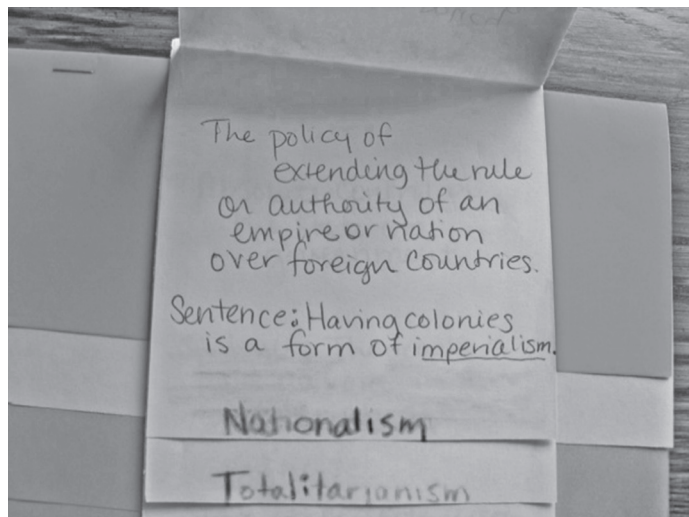 The policy of
extending the rule
or authority of an
empire or nation
over foreign countries.
Sentence: Having colonies
is a form of imperialism.
Nationalism
Totalitarianism